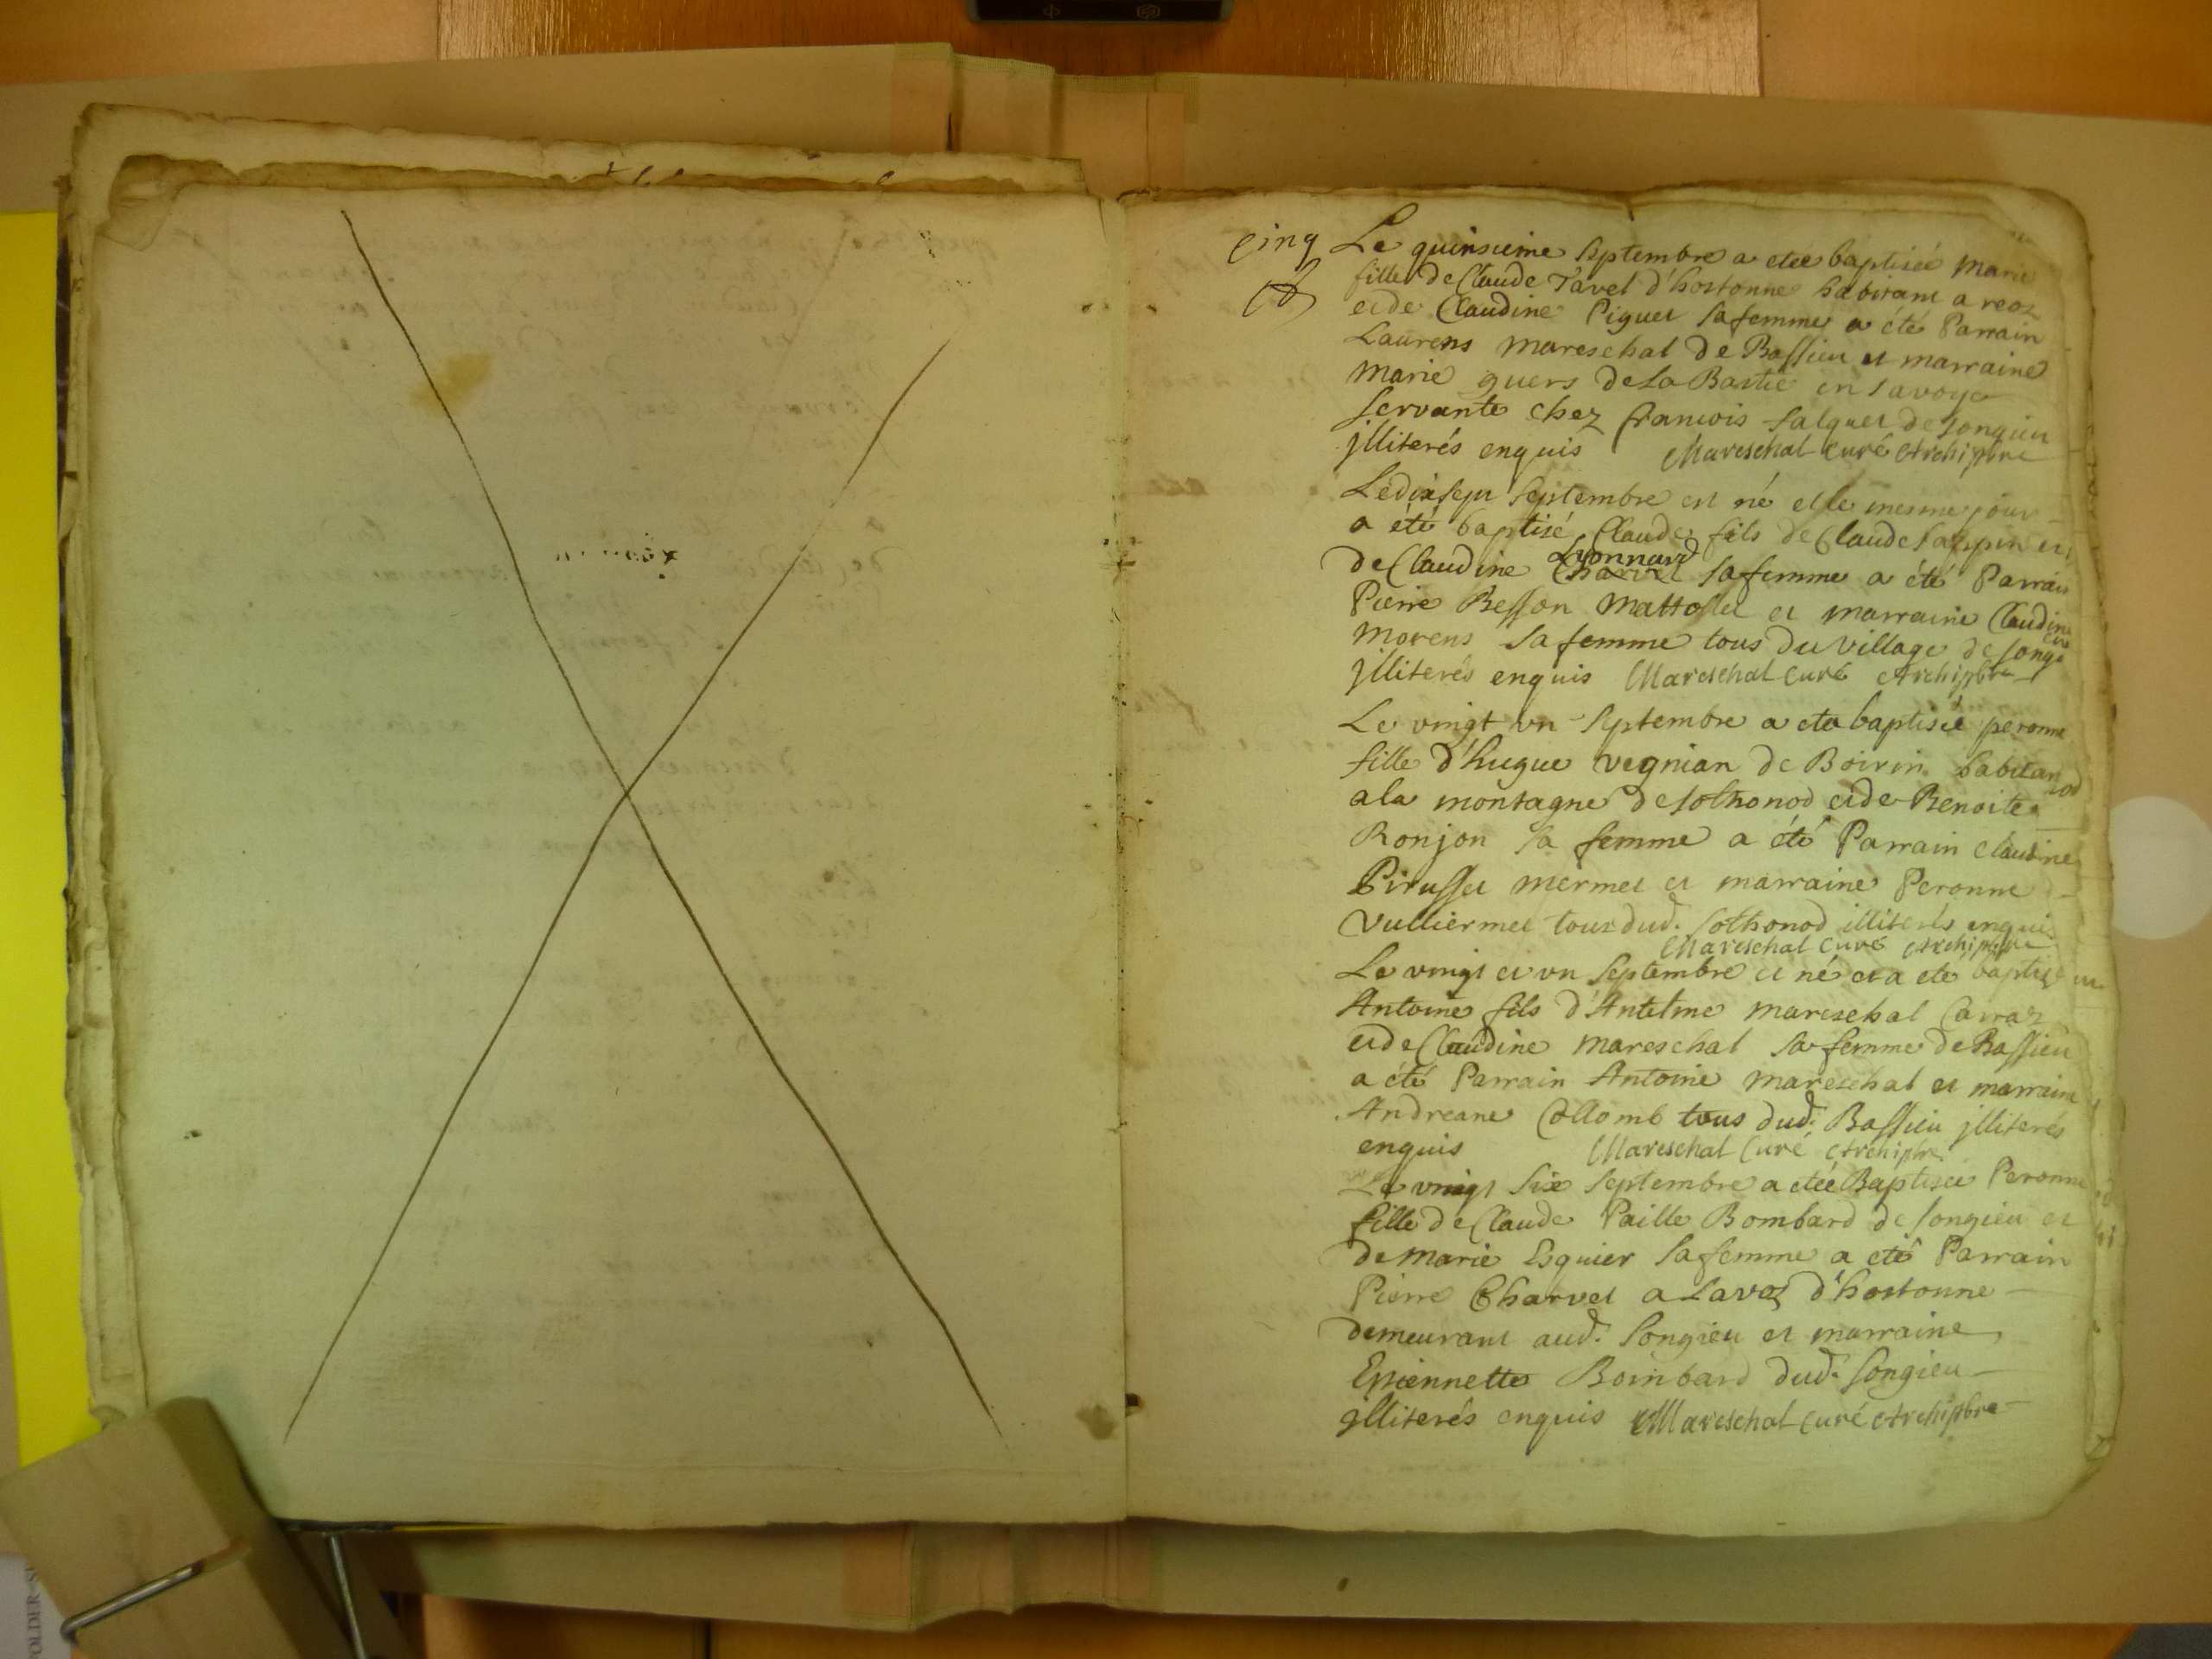 cinq
Le quinsieme septembre a eteé baptiseé marie
fille de Claude Tavel d'hostonne habitant a reoz
et de Claudine Piguet sa femme a été Parrain
Laurens mareschal de Bassieu et marraine
marie guers de La Bastie en savoye
servante chez francois salquet de songieu
jlliterés enquis Mareschal Curé Archipbre
Le dixsept septembre est né et le mesme jour
a été baptisé Claude fils de Claude sappin et
Lyonnard
de Claudine Charvet sa femme a été Parrain
Pierre Besson Mattollet et marraine Claudine
morens sa femme tous du village de songieu
jlliterés enquis Mareschal Curé Archipbre
Le vingt un septembre a eté baptiseé peronne
fille d'hugue vegnian de Boirin habitan
a la montagne de sothonod et de Benoite
Ronjon sa femme a été Parrain Claudine
Pirusset mermet et marraine Peronne
Vulliermet tous dud. sothonod illiterés enquis
Mareschal Curé Archipbre
Le vingt et un septembre et né et a eté baptisé
Antoine fils d'Antelme mareschal Carraz
et de Claudine mareschal sa femme de Bassieu
a été Parrain Antoine mareschal et marraine
Andreane Collomb tous dud. Bassieu jlliterés
enquis Mareschal Curé Archipbr
Le vingt six septembre a eteé Baptiseé Peronne
fille de Claude Paille Bombard de songieu et
de marie Esquier sa femme a eté Parrain
Pierre Charvet a Lavoz d'hostonne
demeurant aud. songieu et marraine
Epiennette Bombard dud. songieu
jlliterés enquis Mareschal Curé Archipbre